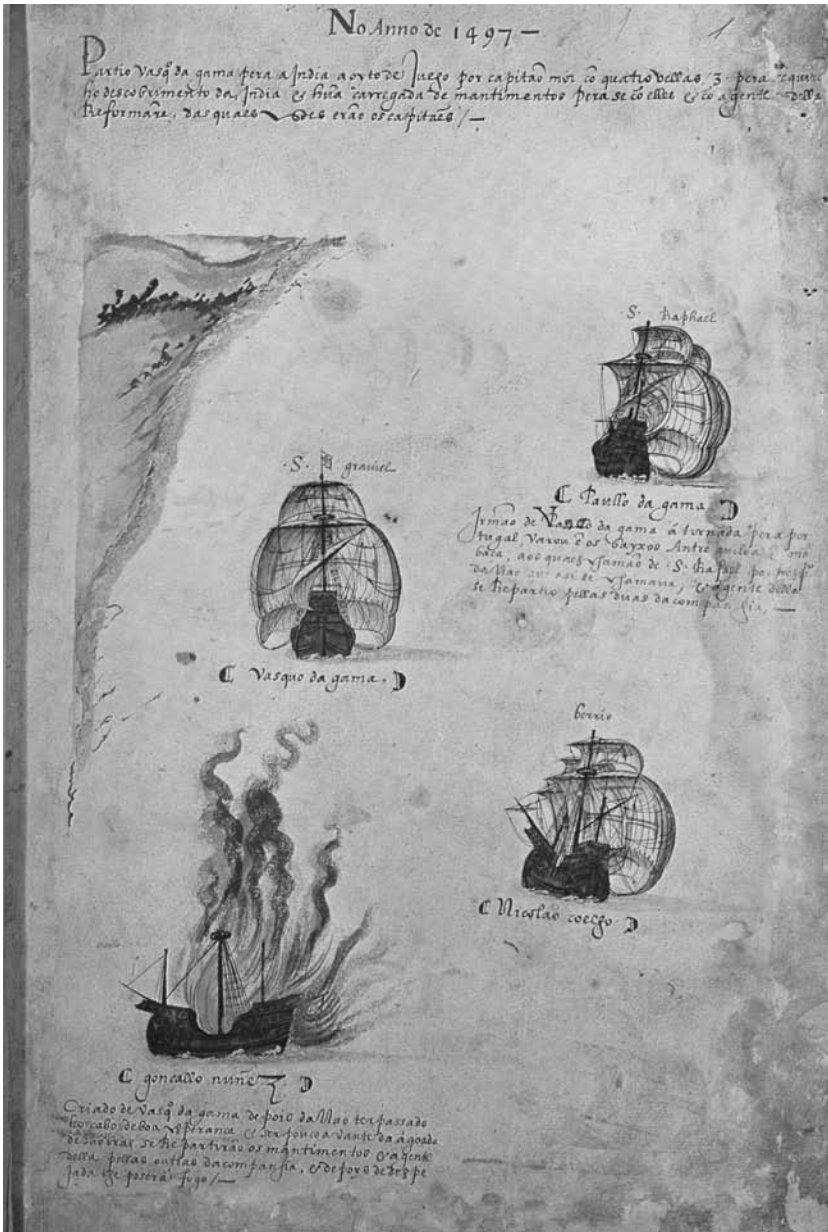 No Anno de 1497 —
1
Partio Vasq̃ da gama pera a India a oyto de Juego por capitão mor cõ quatro vellas, 3. pera
ho descobrimento da India & hũa carregada de mantimentos pera se cõ elles & cõ a gente della
Reformarẽ, das quaes erão os capitães / —
S. Raphael
Paullo da gama
Irmão de Vasco da gama á tornada pera por
tugal, Varou ẽ os bayxos Antre quiloa & mõ
baca, aos quaes de S. Rafael por
da Nao & a gente della
se Repartio pellas duas da companhia, —
S. graviel
Vasquo da gama,
berrio
Nicolao coelgo
goncallo nuñez
Criado de Vasq̃ da gama depois da Nao ter passado
ho cabo de boa esperanca & ser pouco avante da agoada
de são bras, se Repartirão os mantimentos & a gente
della pellas outras da companhia, & depois de despe
jada lhe poserão fogo / —